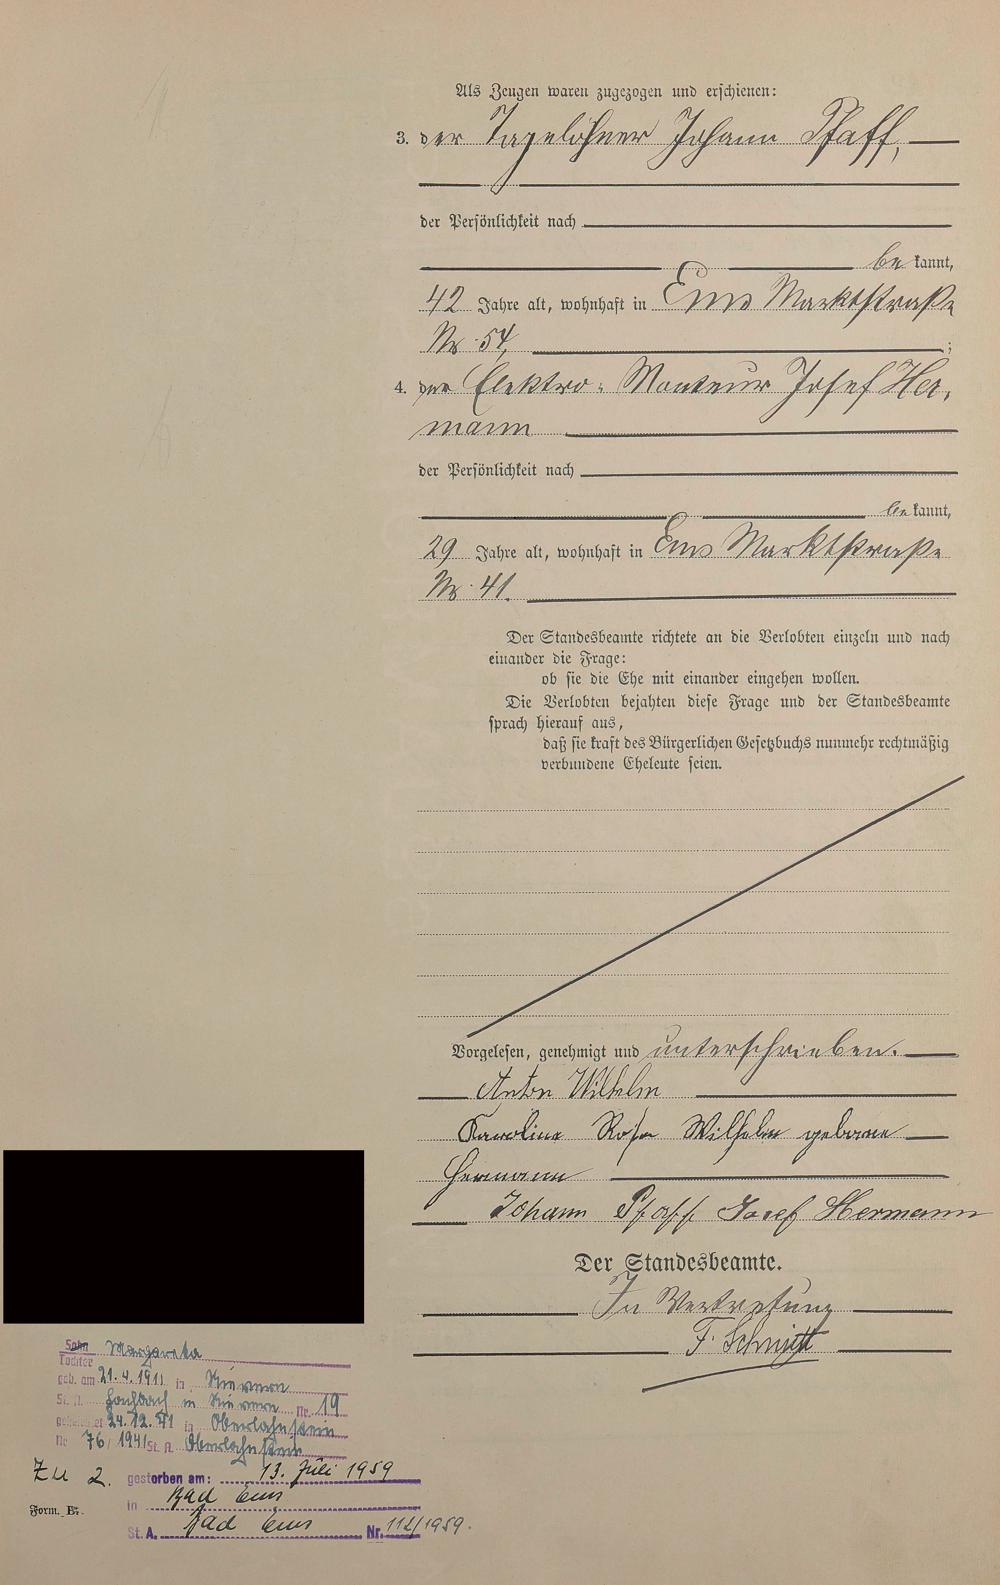 Als Zeugen waren zugezogen und erschienen:
3. der Tagelöhner Johann Pfaff,
der Persönlichkeit nach
be kannt,
42 Jahre alt, wohnhaft in Ems Marktstraße
Nr. 54,
;
4. der Elektro-Monteur Josef Her-
mann
der Persönlichkeit nach
be kannt,
29 Jahre alt, wohnhaft in Ems Marktstraße
Nr. 41.
Der Standesbeamte richtete an die Verlobten einzeln und nach
einander die Frage:
ob sie die Ehe mit einander eingehen wollen.
Die Verlobten bejahten diese Frage und der Standesbeamte
sprach hierauf aus,
daß sie kraft des Bürgerlichen Gesetzbuchs nunmehr rechtmäßig
verbundene Eheleute seien.
Vorgelesen, genehmigt und unterschrieben.
Anton Wilhelm
Karoline Rosa Wilhelm geborne
Hermann
Johann Pfaff Josef Hermann
Der Standesbeamte.
In Vertretung
F. Schmitt
Sohn Margareta
Tochter
geb. am 21.4.1911 in Nievern
St. A. Fachbach in Nievern Nr. 19
geheiratet 24.12.41 in Oberlahnstein
Nr. 76/1941 St. A. Oberlahnstein
Zu 2. gestorben am: 13. Juli 1959
in Bad Ems
Form. B.
St. A. Bad Ems Nr. 112/1959.